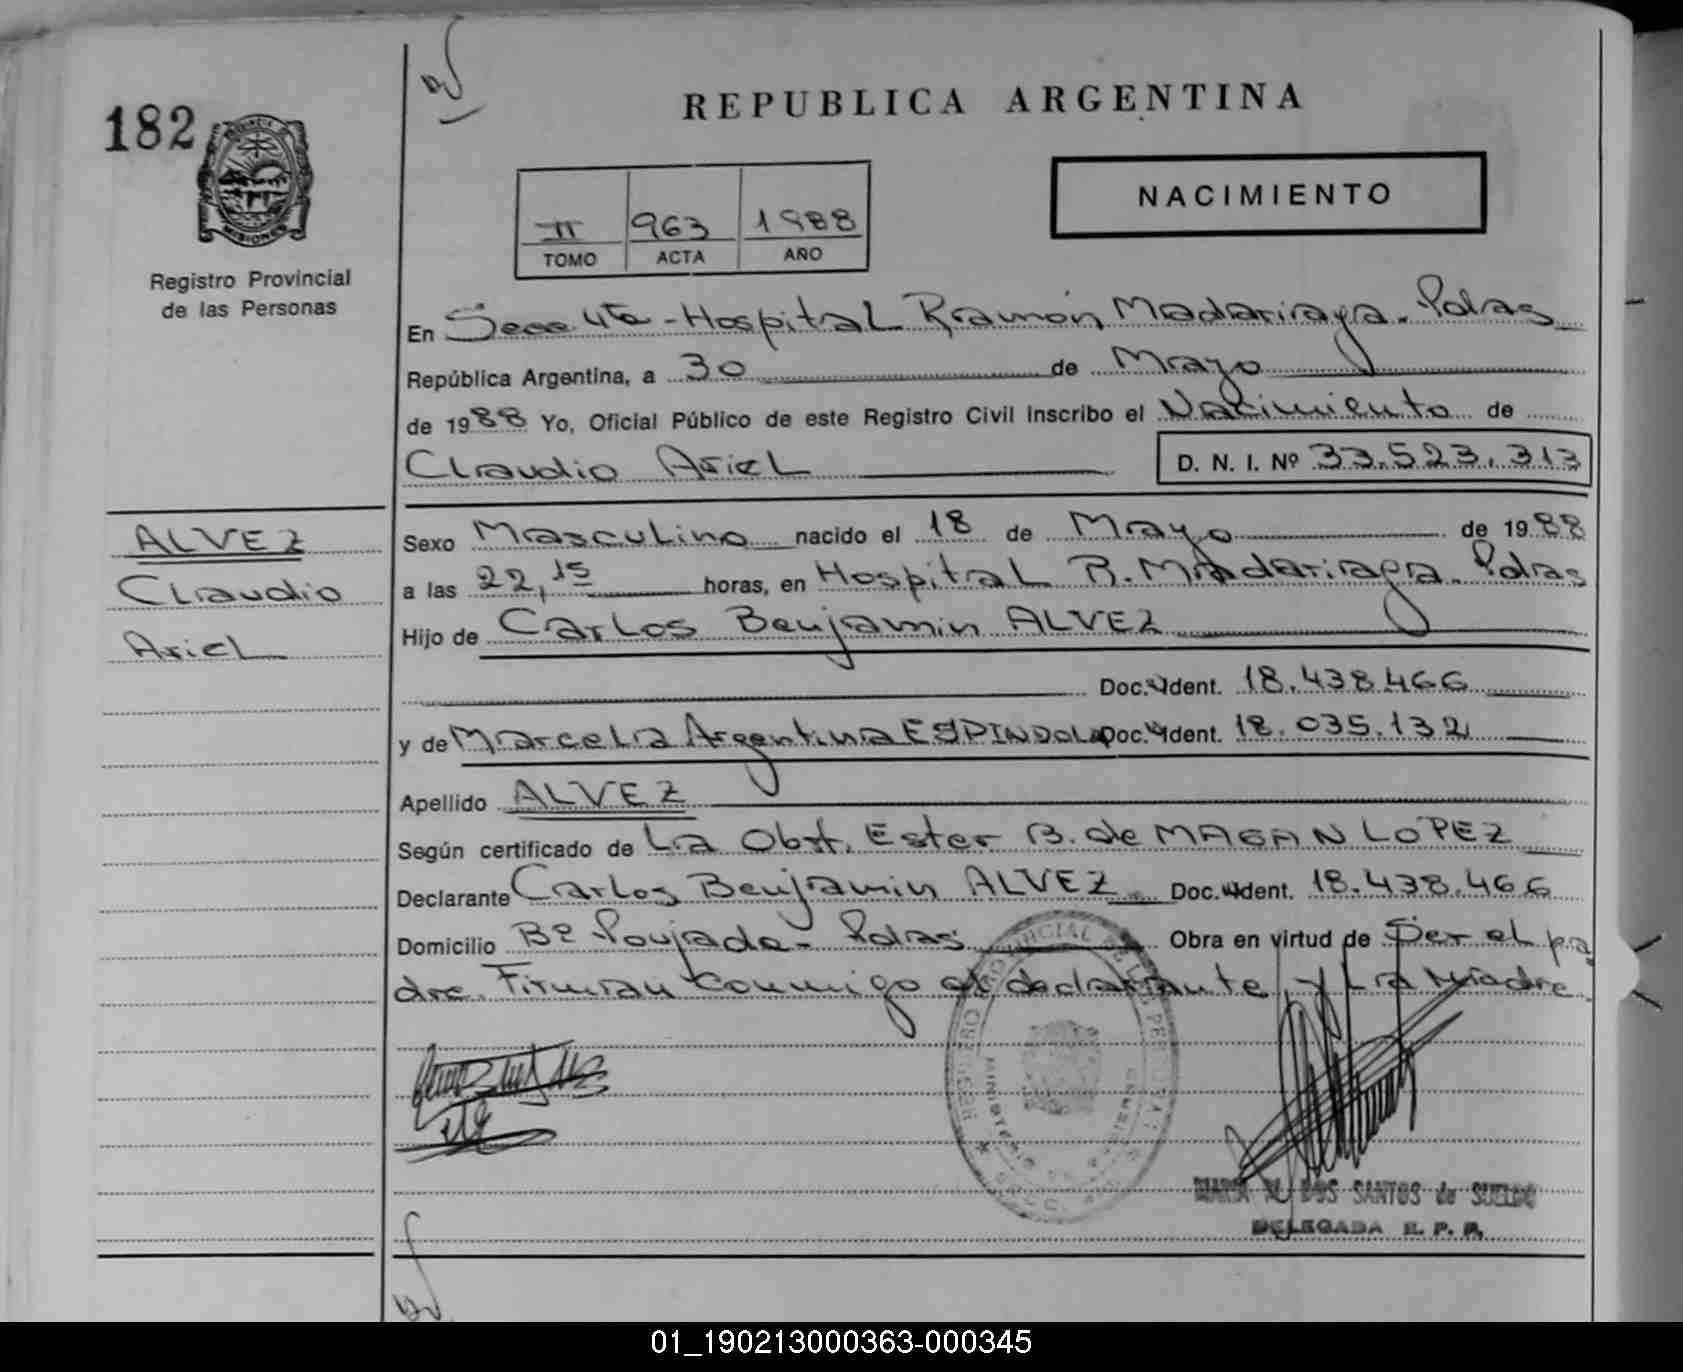 REPUBLICA ARGENTINA
182
NACIMIENTO
II 963 1988
TOMO ACTA AÑO
MISIONES
Registro Provincial
de las Personas
En Secc 4ta - Hospital Ramón Madariaga. Pdas
República Argentina, a 30 de Mayo
de 1988 Yo, Oficial Público de este Registro Civil Inscribo el Nacimiento de
Claudio Ariel D. N. I. Nº 33.523.313
ALVEZ
Claudio
Ariel
Sexo Masculino nacido el 18 de Mayo de 1988
a las 22,15 horas, en Hospital R. Madariaga. Pdas
Hijo de Carlos Benjamin ALVEZ
Doc. Ident. 18.438.466
y de Marcela Argentina ESPINDOLA Doc. Ident. 18.035.132
Apellido ALVEZ
Según certificado de La Obst. Ester B. de MAGAN LOPEZ
Declarante Carlos Benjamin ALVEZ Doc. Ident. 18.438.466
Domicilio Bº Poujade - Pdas Obra en virtud de Ser el pa
dre. Firman conmigo el declarante y La Madre.
REGISTRO PROVINCIAL DE LAS PERSONAS
MINISTERIO DE GOBIERNO
MARIA N. DOS SANTOS de SUELDO
DELEGADA R. P. P.
01_190213000363-000345